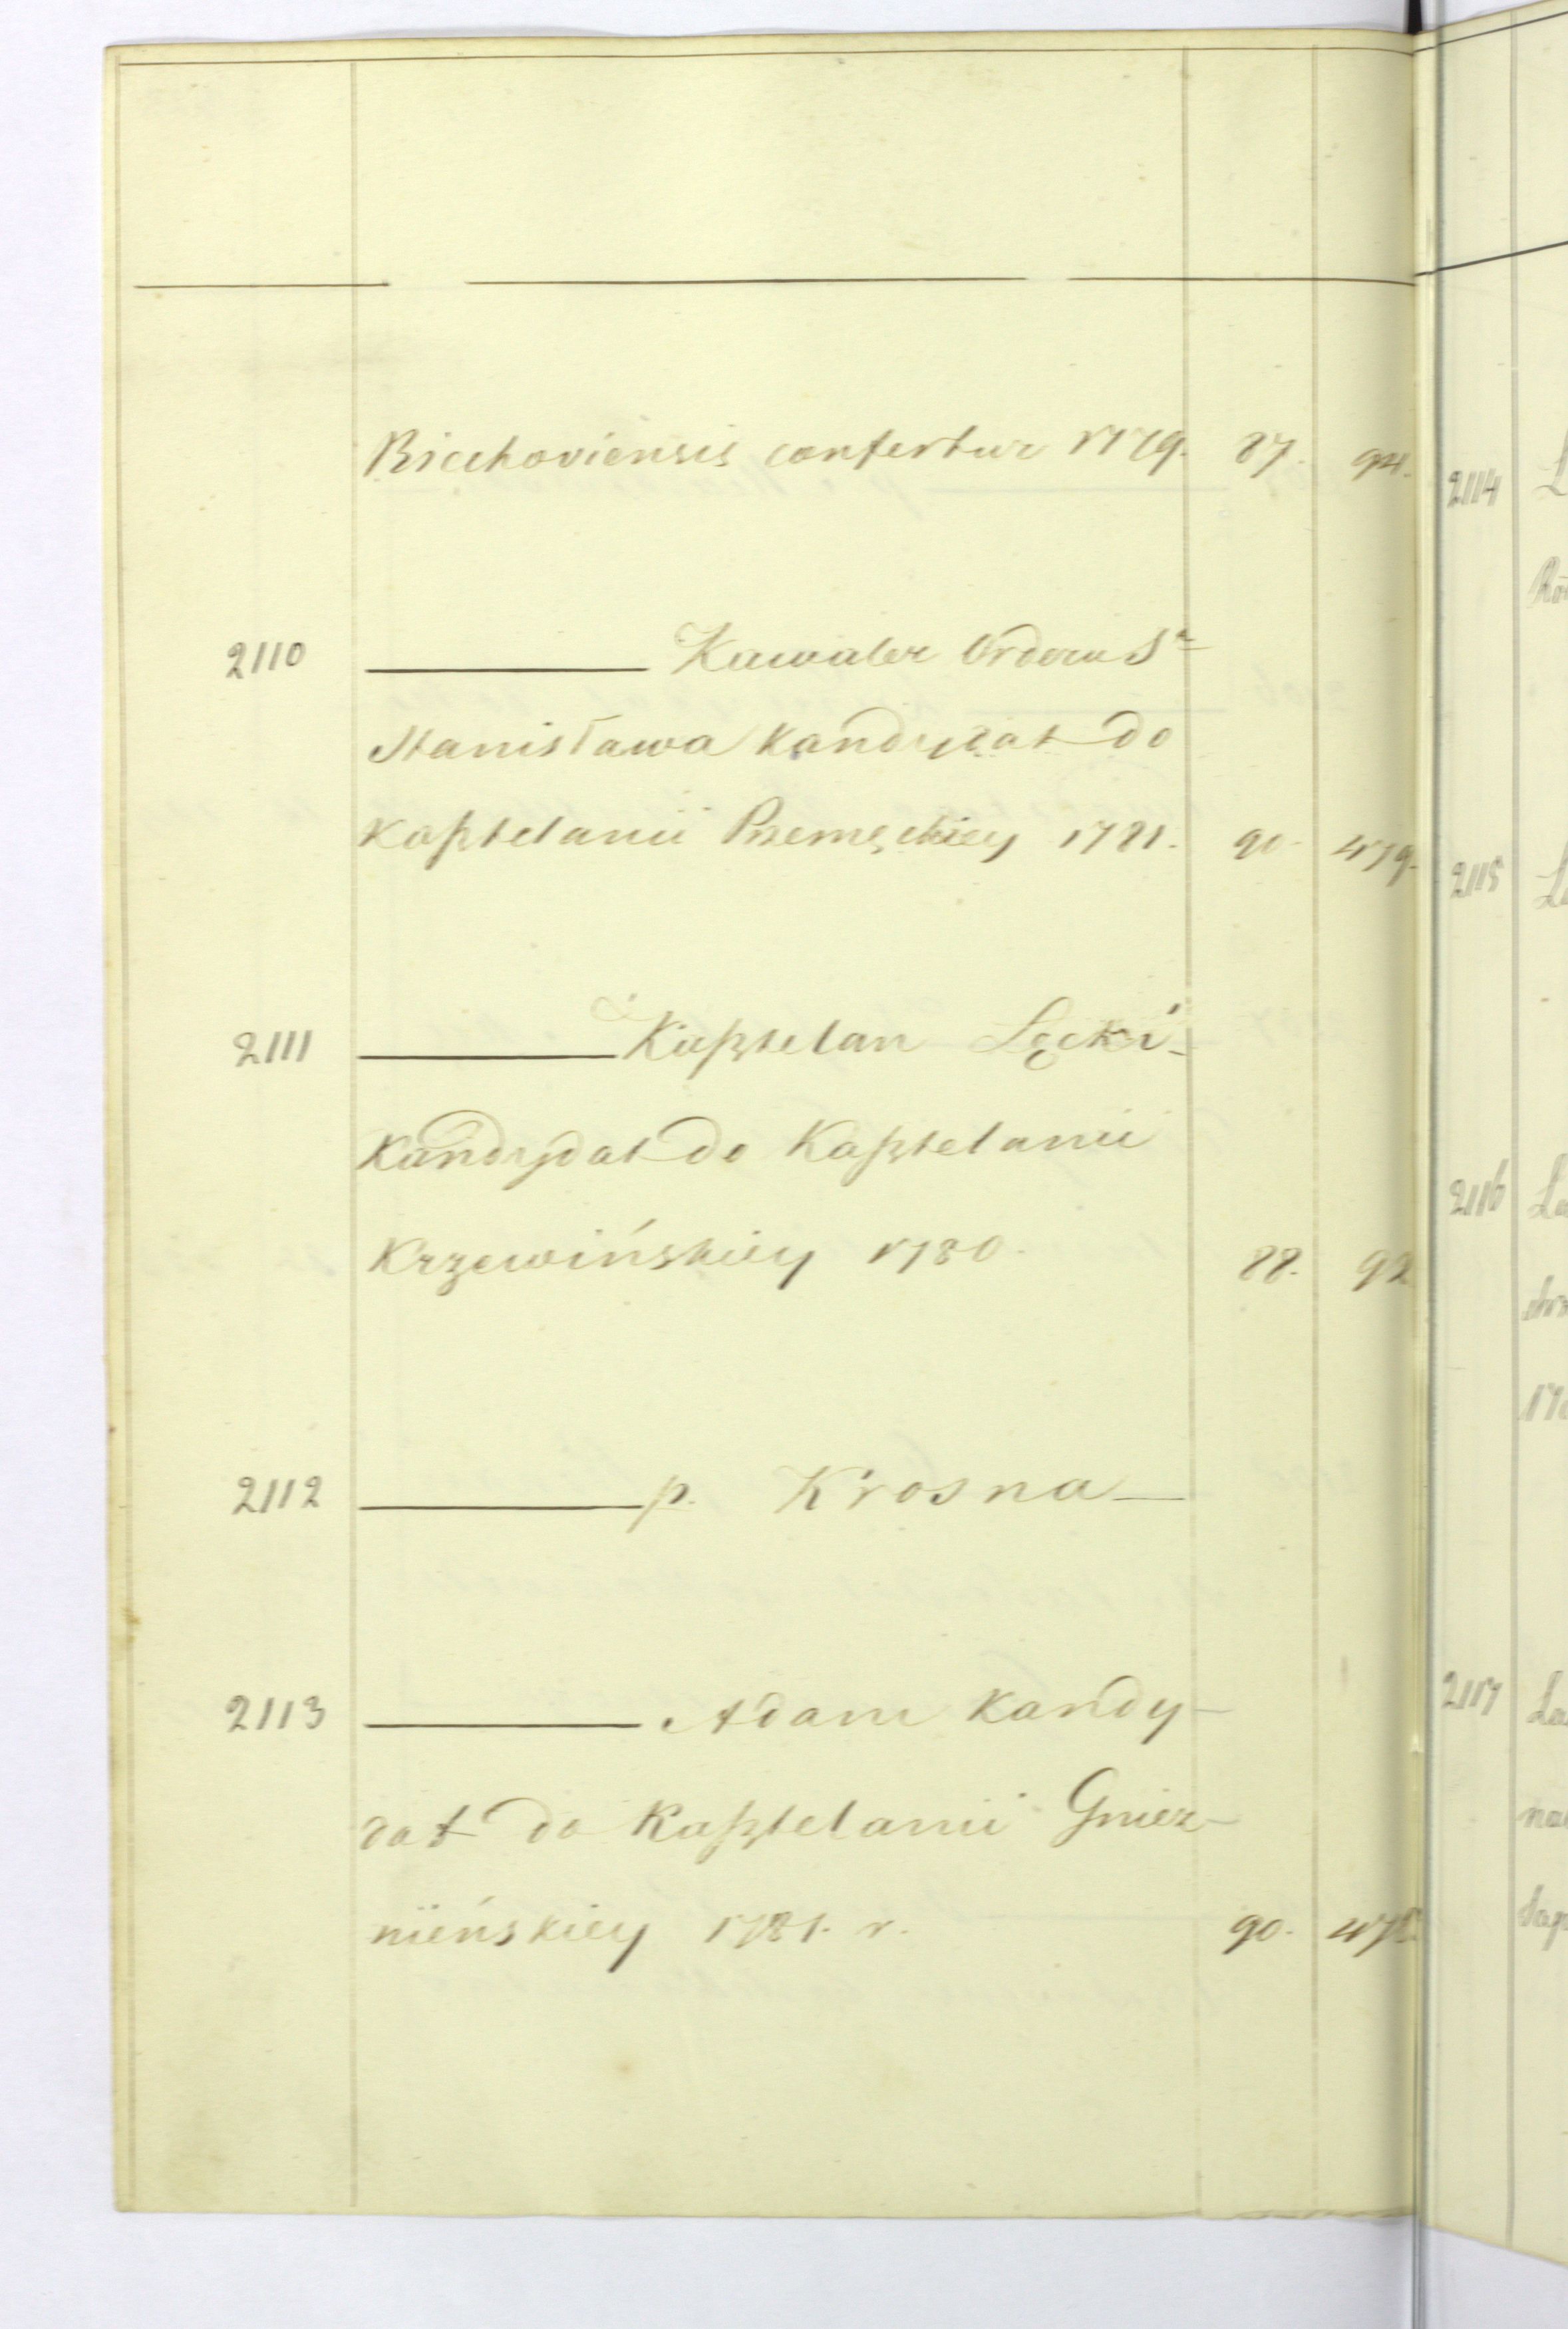 Biechoviensis confertur 1779. 87. 94.
2110 ——— Kawaler Orderu Sº
Stanisława Kandydat do
Kasztelanii Przemęckiey 1781. 90. 479.
2111 ——— Kasztelan Lęcki
Kandydat do Kasztelanii
Krzewińskiey 1780. 88. 92
2112 ——— p. Krosna —
2113 ——— Adam Kandy-
dat do Kasztelanii Gniez-
nieńskiey 1781. r. 90.
2114
2115
2116
2117